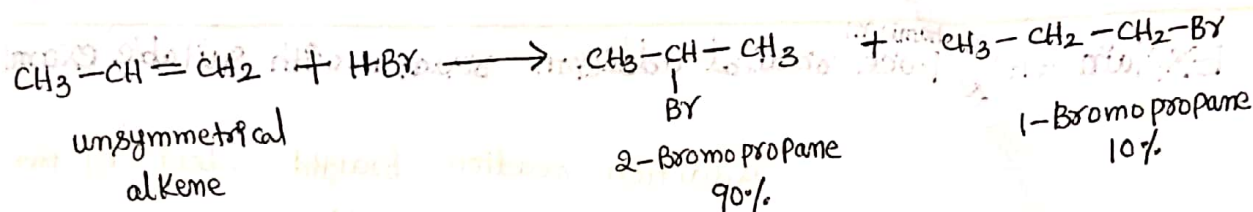 CH3-CH=CH2 + HBr ⟶ CH3-CH-CH3 + CH3-CH2-CH2-Br
Br
unsymmetrical
alkene
2-Bromo propane
90%
1-Bromo propane
10%